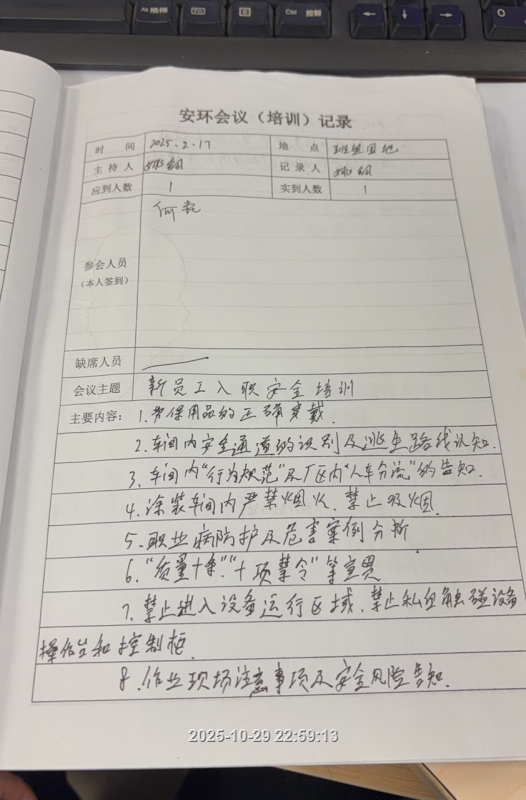 安环会议（培训）记录
时 间 2025.2.17 地 点 班组园地
主持人 记录人
应到人数 1 实到人数 1
何
参会人员
（本人签到）
缺席人员
会议主题 新员工入职安全培训
主要内容：1.劳保用品的正确穿戴.
2.车间内安全通道的识别及逃生路线认知.
3.车间内“行为规范”及厂区内“人车分流”的告知.
4.涂装车间内严禁烟火、禁止吸烟.
5.职业病防护及危害案例分析
6.“质量十条”“十项禁令”等宣贯
7.禁止进入设备运行区域.禁止私自触碰设备
操作台和控制柜.
8.作业现场注意事项及安全风险告知.
2025-10-29 22:59:13